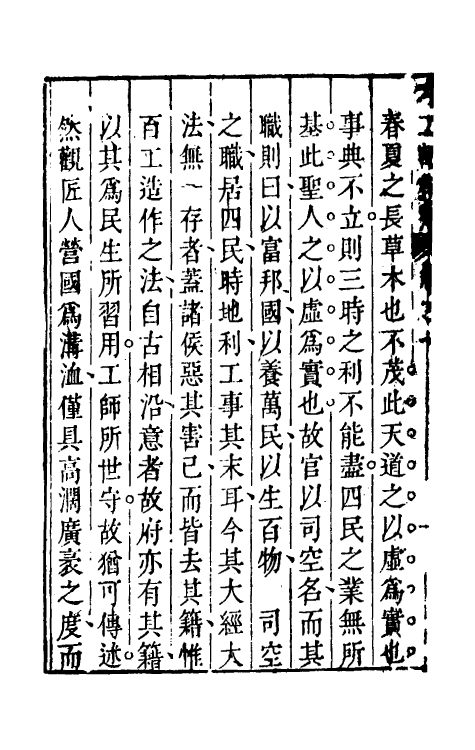 春夏之長草木也不茂此天道之以虛爲實也
事典不立則三時之利不能盡四民之業無所
基此聖人之以虛爲實也故官以司空名而其
職則曰以富邦國以養萬民以生百物　司空
之職居四民時地利工事其末耳今其大經大
法無一存者蓋諸侯惡其害己而皆去其籍惟
百工造作之法自古相沿意者故府亦有其籍
以其爲民生所習用工師所世守故猶可傳述
然觀匠人營國爲溝洫僅具高深廣袤之度而